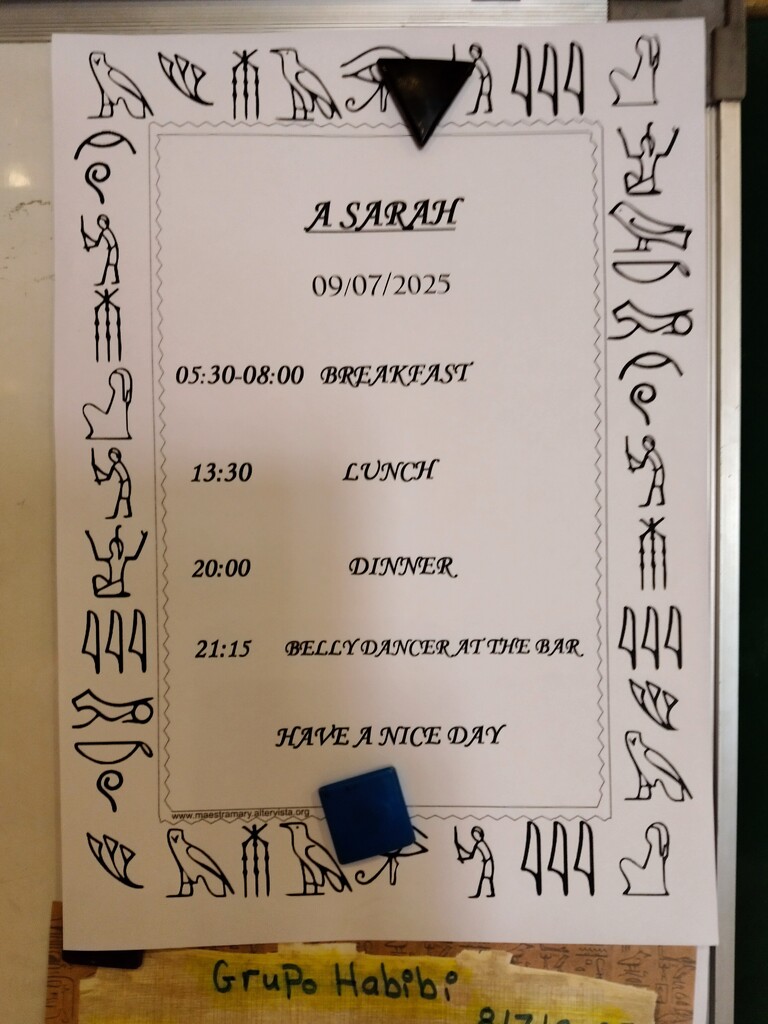 A SARAH
09/07/2025
05:30-08:00 BREAKFAST
13:30 LUNCH
20:00 DINNER
21:15 BELLY DANCER AT THE BAR
HAVE A NICE DAY
www.maestramary.altervista.org
Grupo Habibi